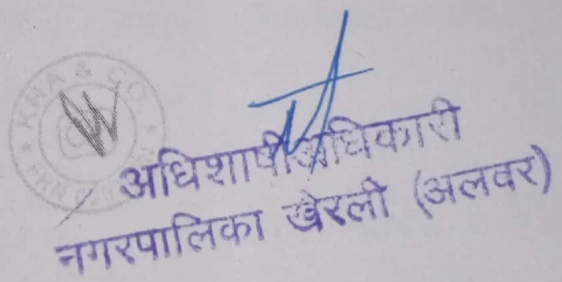 KRA & CO
FRN
अधिशाषी अधिकारी
नगरपालिका खेरली (अलवर)